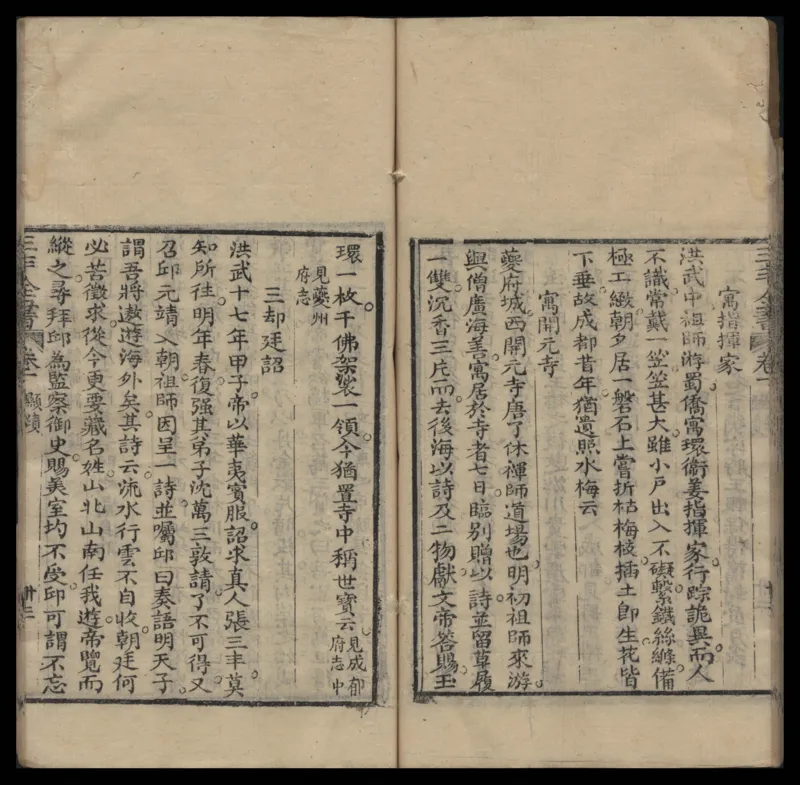 三丰全書 卷一
寓指揮家
洪武中祖師游蜀僑寓環衛姜指揮家行踪詭異而人
不識常戴一笠笠甚大雖小戶出入不礙繫鐵絲絛備
極工緻朝夕居一磐石上嘗折枯梅枝插土卽生花皆
下垂故成都昔年猶遺照水梅云
寓開元寺
夔府城西開元寺唐了休禪師道場也明初祖師來游
與僧廣海善寓居於寺者七日臨別贈以詩並留草履
一雙沉香三片而去後海以詩及二物獻文帝答賜玉
環一枚千佛袈裟一領今猶置寺中稱世寶云見成郁府志中
見夔州府志
三却廷詔
洪武十七年甲子帝以華夷賓服詔求真人張三丰莫
知所往明年春復强其弟子沈萬三敦請了不可得又
召邱元靖入朝祖師因呈一詩並囑邱曰奏語明天子
謂吾將遨遊海外矣其詩云流水行雲不自收朝廷何
必苦徵求從今更要藏名姓山北山南任我遊帝覽而
縱之尋拜邱為監察御史賜美室均不受邱可謂不忘
三丰全書 卷一 顯蹟 廿二